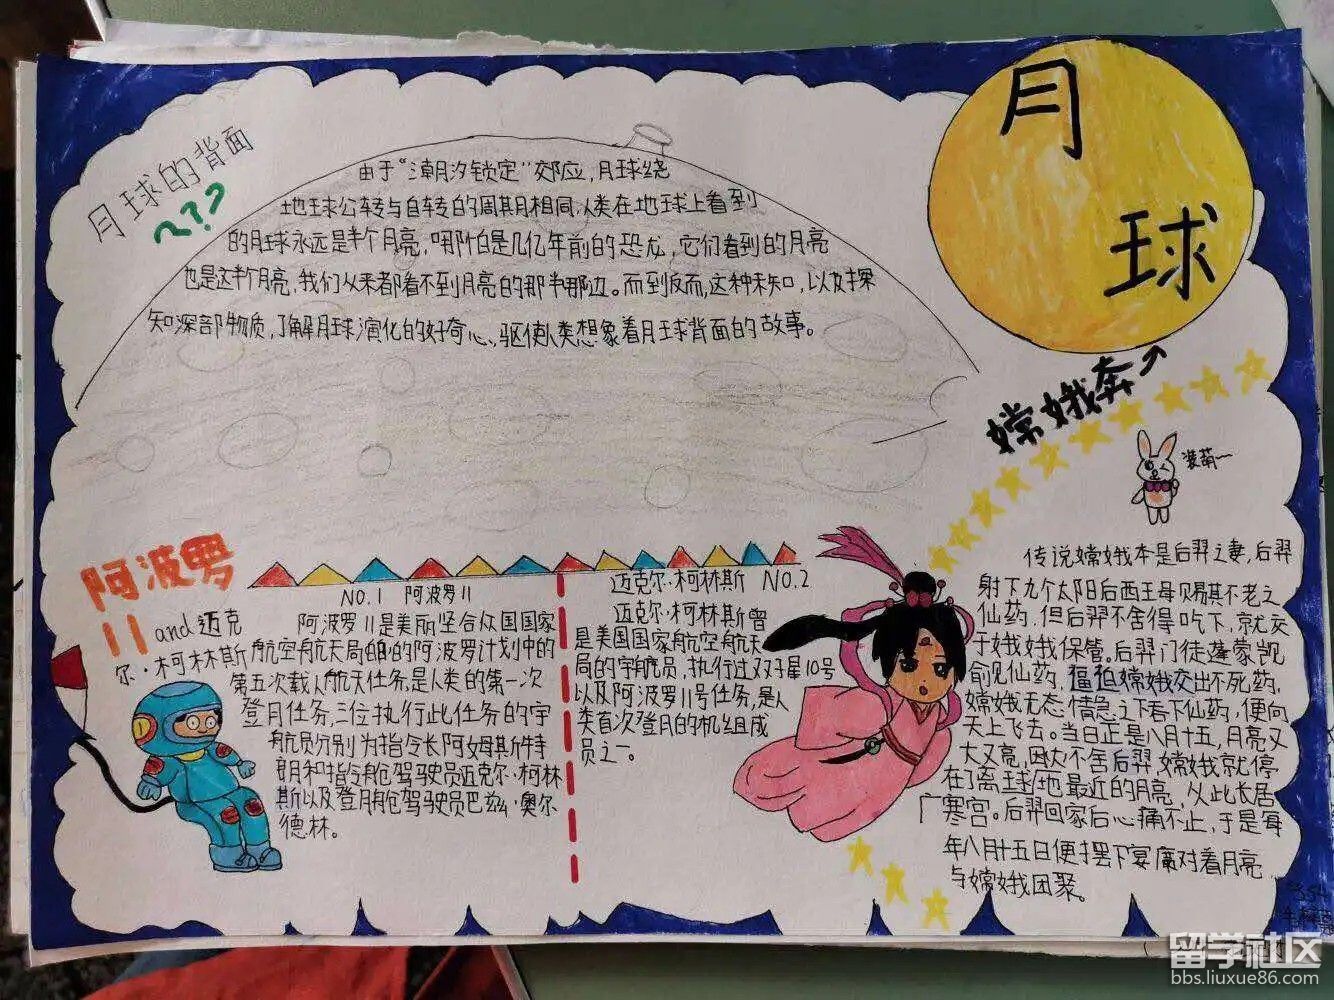 月球
月球的背面
???
由于“潮汐锁定”效应,月球绕
地球公转与自转的周期相同,人类在地球上看到
的月球永远是半个月亮,哪怕是几亿年前的恐龙,它们看到的月亮
也是这半个月亮,我们从来都看不到月亮的那半那边。而到反而,这种未知,以及探
知深部物质,了解月球演化的好奇心、驱使人类想象着月球背面的故事。
嫦娥奔↗
装萌~
阿波罗
11 and 迈克
尔·柯林斯
NO.1 阿波罗11
阿波罗11是美丽坚合众国国家
航空航天局的的阿波罗计划中的
第五次载人航天任务,是人类的第一次
登月任务,三位执行此任务的宇
航员分别为指令长阿姆斯特
朗和指令舱驾驶员迈克尔·柯林
斯以及登月舱驾驶员巴兹·奥尔
德林。
迈克尔·柯林斯 NO.2
迈克尔·柯林斯曾
是美国国家航空航天
局的宇航员,执行过双子星10号
以及阿波罗11号任务,是人
类首次登月的机组成
员之一。
传说嫦娥本是后羿之妻,后羿
射下九个太阳后西王母赐其不老之
仙药,但后羿不舍得吃下,就交
于娥娥保管。后羿门徒蓬蒙觊
俞见仙药,逼迫嫦娥交出不死药,
嫦娥无态情急之下吞下仙药,便向
天上飞去。当日正是八月十五,月亮又
大又亮,因不舍后羿,嫦娥就停
在了离球地最近的月亮,从此长居
广寒宫。后羿回家后心痛不止,于是每
年八月十五日便摆下宴席对着月亮
与嫦娥团聚。
留学社区
bbs.liuxue86.com